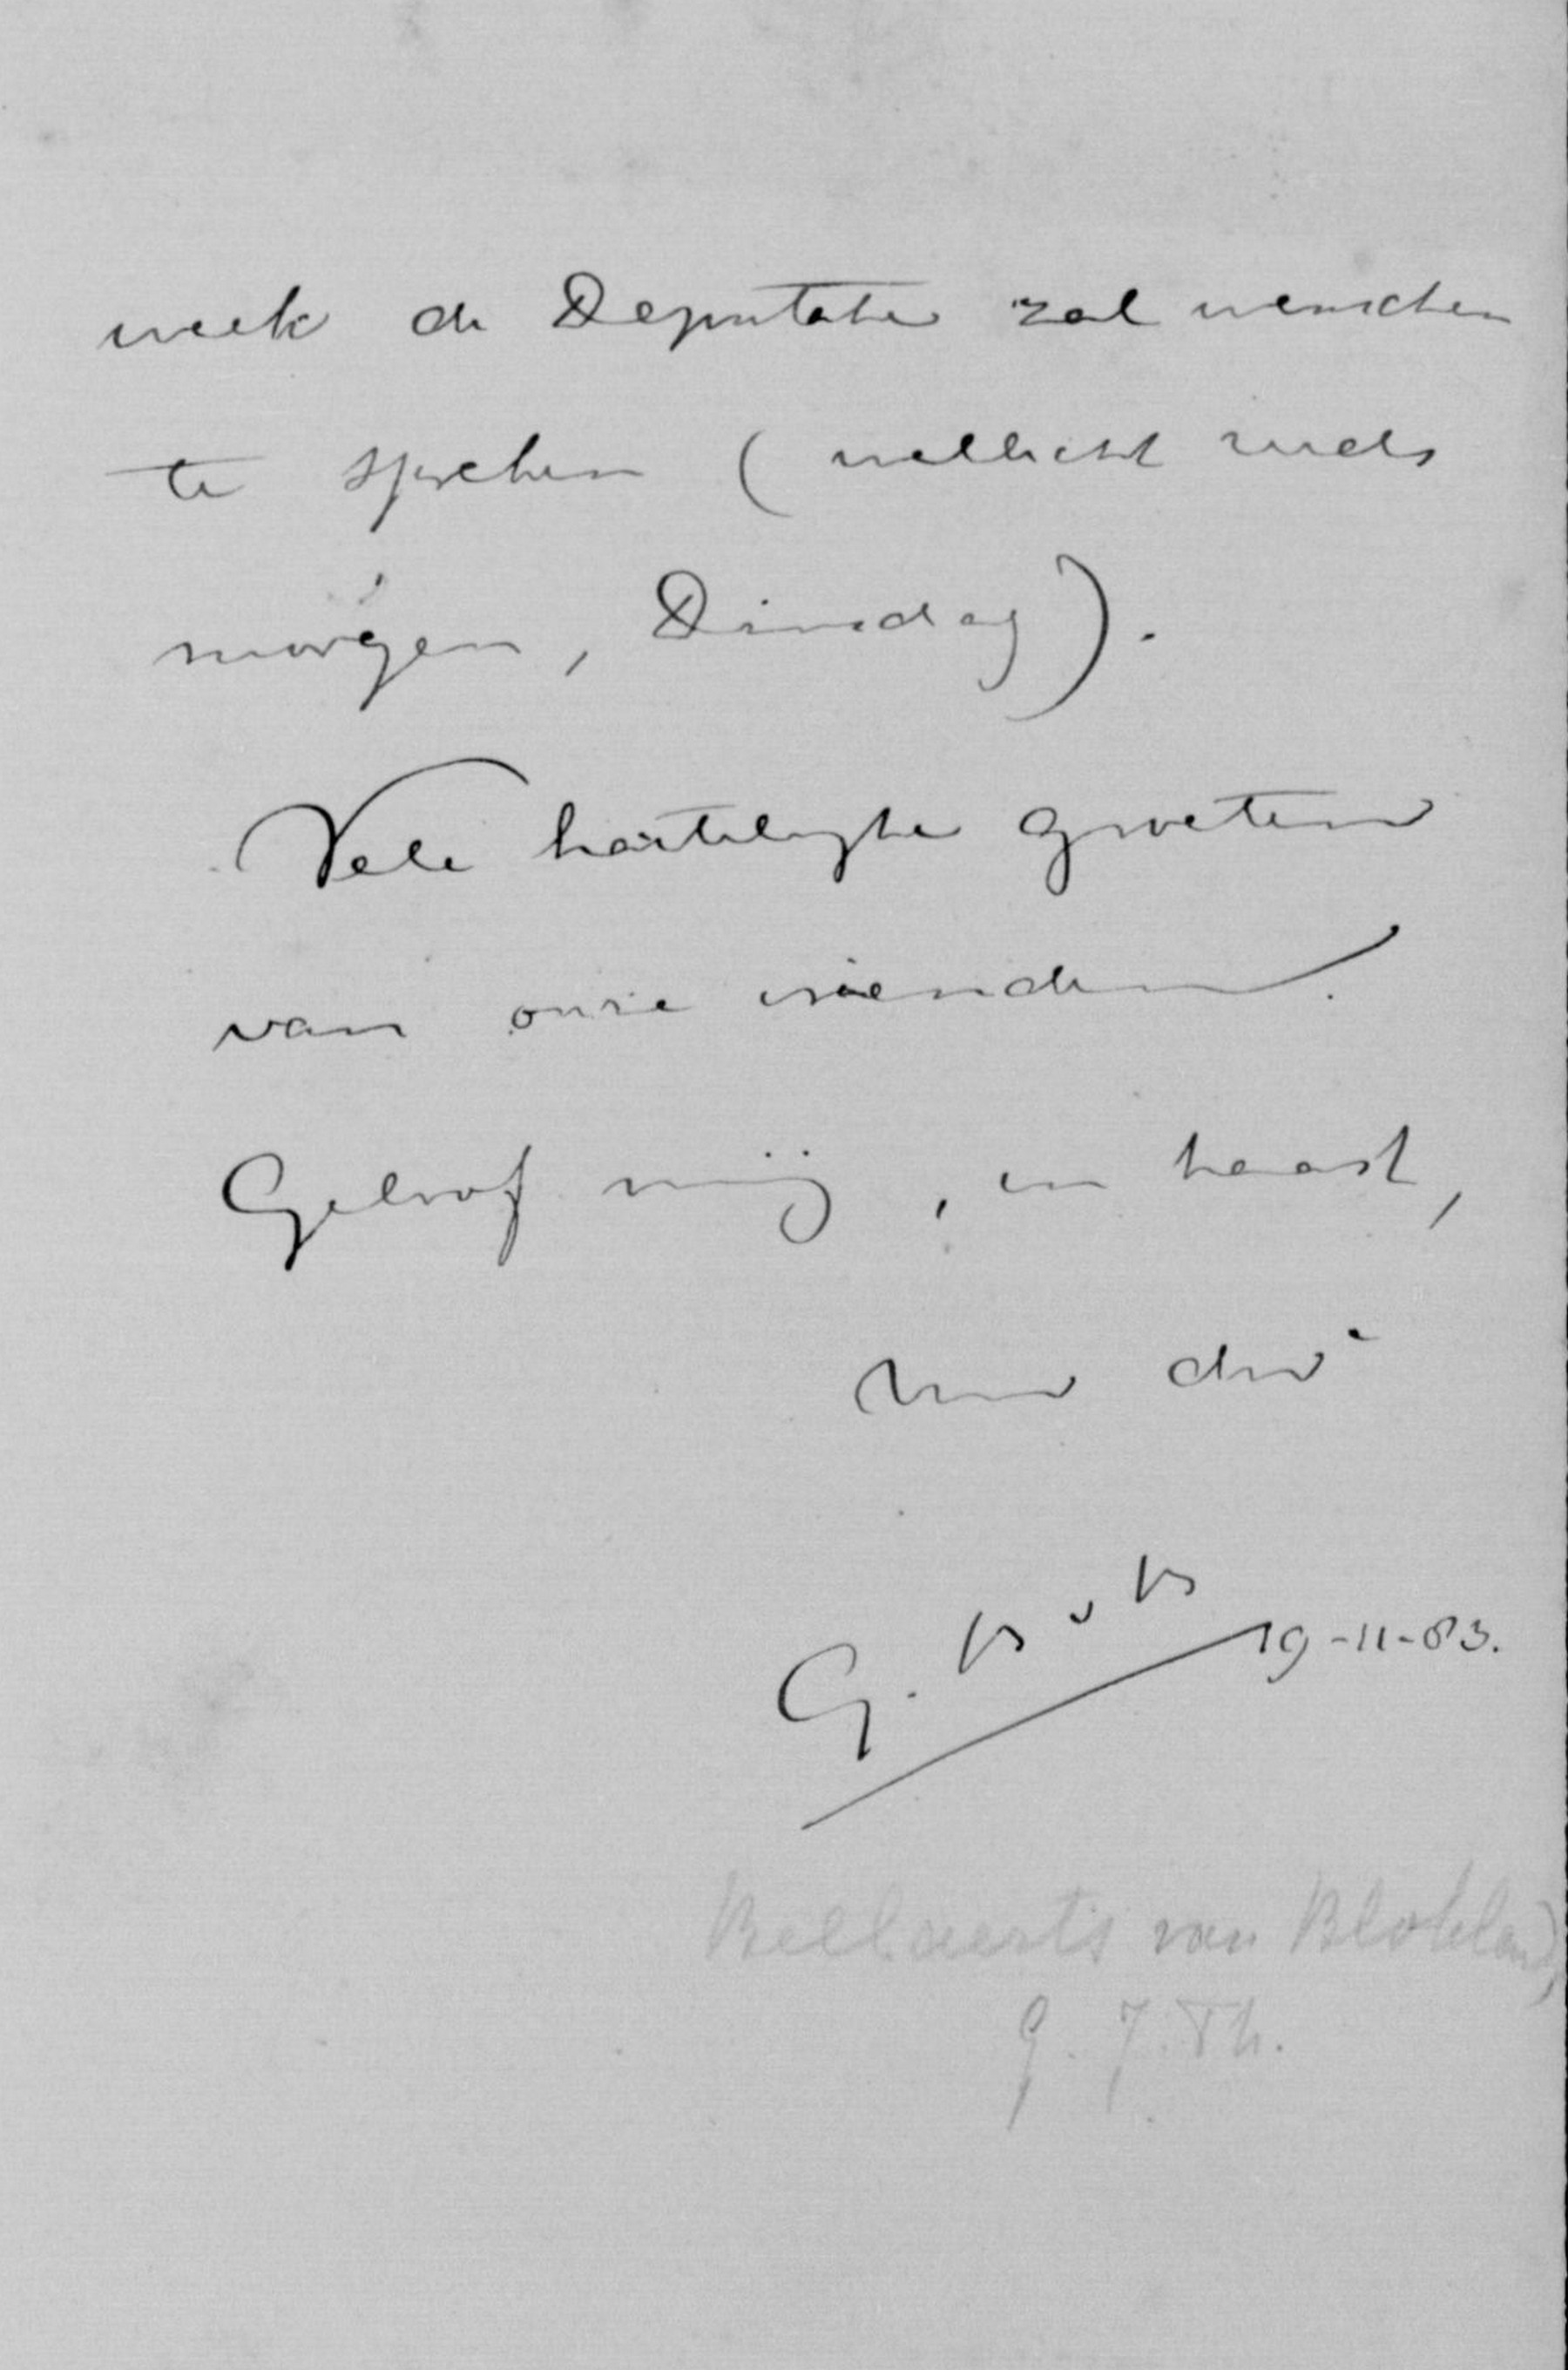 week de Deputatie zal wenschen
te spreken (wellicht reeds
morgen, Dinsdag).
Vele hartelijke groeten
van onze vrienden.
Geloof mij, in haast,
Uw dw
G. B v B
19-11-83.
Beelaerts van Blokland,
G. J. Th.